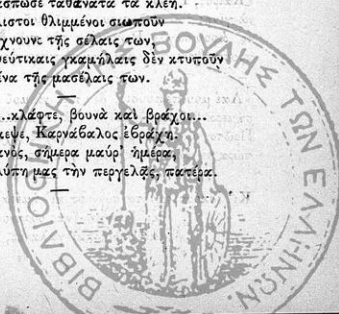 σπωσε ταθάνατα τα κλέη.
λιστοι θλιμμένοι σιωποῦν
χνουν τῆς σέλαις των,
εύτικαις γκαμήλαις δὲν κτυποῦν
ένα τῆς μασέλαις των.
...κλάφτε, βουνὰ καὶ βράχοι...
κεψε, Καρνάβαλος ἐβράχη.
ανός, σήμερα μαύρ' ἡμέρα,
λύπη μας τὴν περγελᾷς, πατέρα.
ΒΙΒΛΙΟΘΗΚΗ ΤΗΣ ΒΟΥΛΗΣ ΤΩΝ ΕΛΛΗΝΩΝ